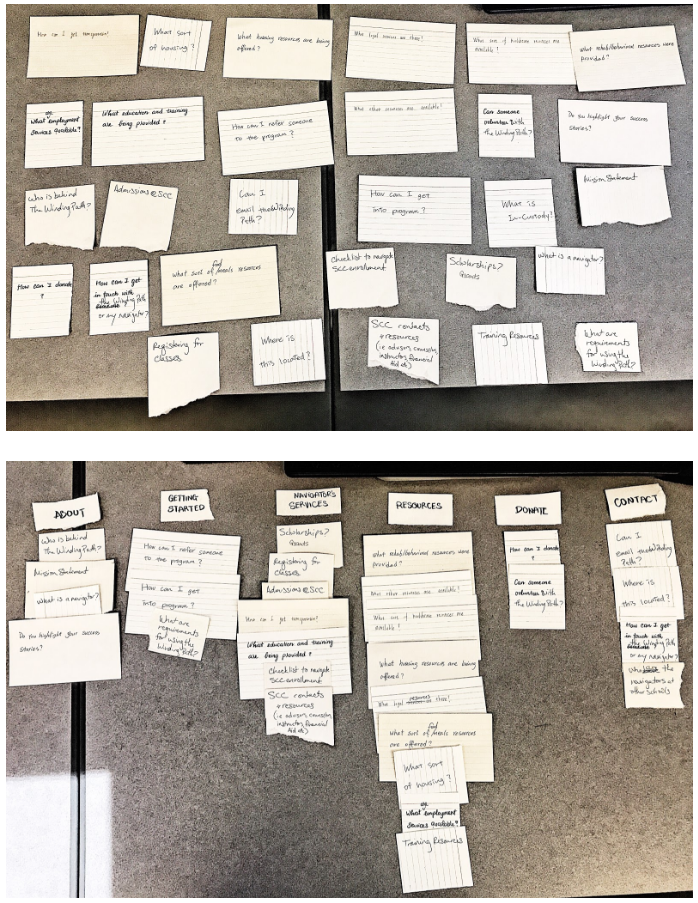 How can I get transportation?
What sort
of housing?
What training resources are being
offered?
Who legal services are there?
What sort of childcare services are
available?
What rehabilitational resources were
provided?
What are employment
services available?
What education and training
are being provided?
How can I refer someone
to the program?
What other resources are available?
Can someone
volunteer with
the Winding Path?
Do you highlight your success
stories?
Who is behind
The Winding Path?
Admissions @ SCC
Can I
email the Winding
Path?
How can I get
into program?
What is
In-Custody?
Mission Statement
How can I donate
?
How can I get
in touch with
the Winding Path
or any navigator?
What sort of food/meals resources
are offered?
Checklist to navigate
SCC enrollment
Scholarships?
Grants
What is a navigator?
Registering for
classes
Where is
this located?
SCC contacts
+ resources
(i.e advisors, counselors,
instructors, financial
Aid etc)
Training Resources
What are
requirements
for using the
Winding Path?
ABOUT
Who is behind
The Winding Path?
Mission Statement
What is a navigator?
Do you highlight your success
stories?
GETTING
STARTED
How can I refer someone
to the program?
How can I get
into program?
What are
requirements
for using the
Winding Path?
NAVIGATORS
SERVICES
Scholarships?
Grants
Registering for
classes
Admissions @ SCC
How can I get transportation?
What education and training
are being provided?
Checklist to navigate
SCC enrollment
SCC contacts
+ resources
(i.e advisors, counselors,
instructors, financial
Aid etc)
RESOURCES
What rehabilitational resources were
provided?
What other resources are available?
What sort of childcare services are
available?
What training resources are being
offered?
Who legal resources are there?
What sort of food/meals resources
are offered?
What sort
of housing?
What are employment
services available?
Training Resources
DONATE
How can I donate
?
Can someone
volunteer with
the Winding Path?
CONTACT
Can I
email the Winding
Path?
Where is
this located?
How can I get
in touch with
the Winding Path
or any navigator?
the
navigators at
other schools